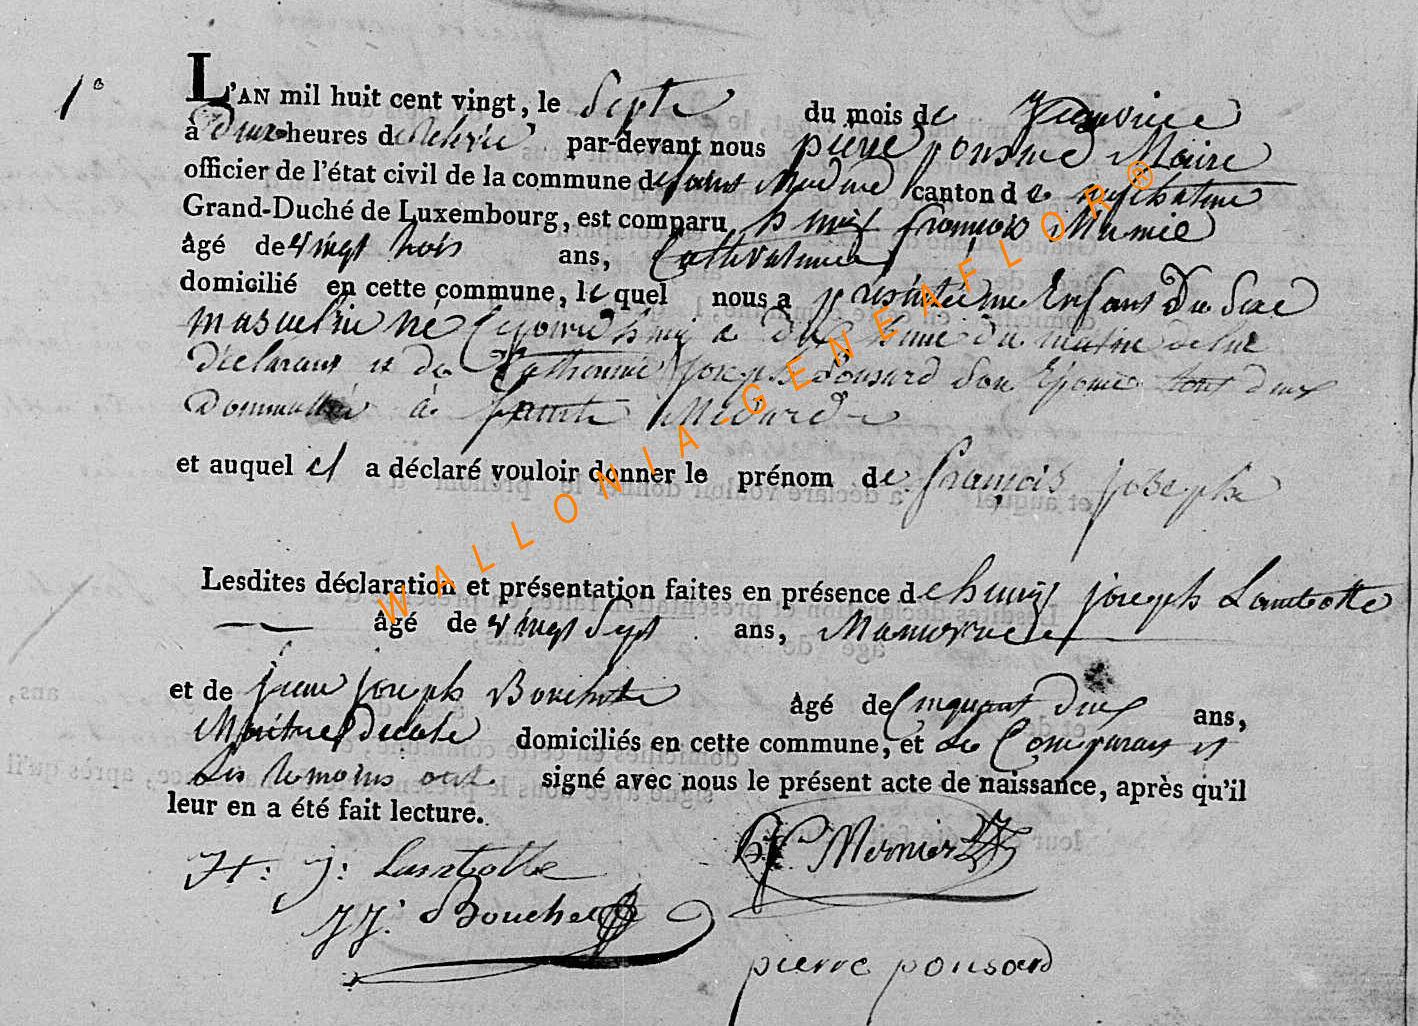 1°
L'AN mil huit cent vingt, le Septe du mois de Janvier
à deux heures de relevée par-devant nous pierre ponsard Maire
officier de l'état civil de la commune de saint Medard canton de neufchateau
Grand-Duché de Luxembourg, est comparu henry françois Mernier
âgé de vingt trois ans, Cultivateur
domicilié en cette commune, le quel nous a présenté une Enfant Du Sexe
masculin né cejourd'huy a dix heure du matin de lui
Déclarant et de Catherine Joseph Ponsard Son Epouse tout deux
Domicilié à sainte Medard
et auquel il a déclaré vouloir donner le prénom de françois joseph
Lesdites déclaration et présentation faites en présence de henry joseph Lambotte
âgé de vingt Sept ans, Manoeuvre
et de jean joseph Bouchet âgé de Cinquant Deux ans,
Maitre D'ecole domiciliés en cette commune, et le Comparant et
Les temoins ont signé avec nous le présent acte de naissance, après qu'il
leur en a été fait lecture.
H: J: Lambotte
hf Mernier
J J: Bouchet
pierre ponsard
WALLONIA-GENEAFLOR®